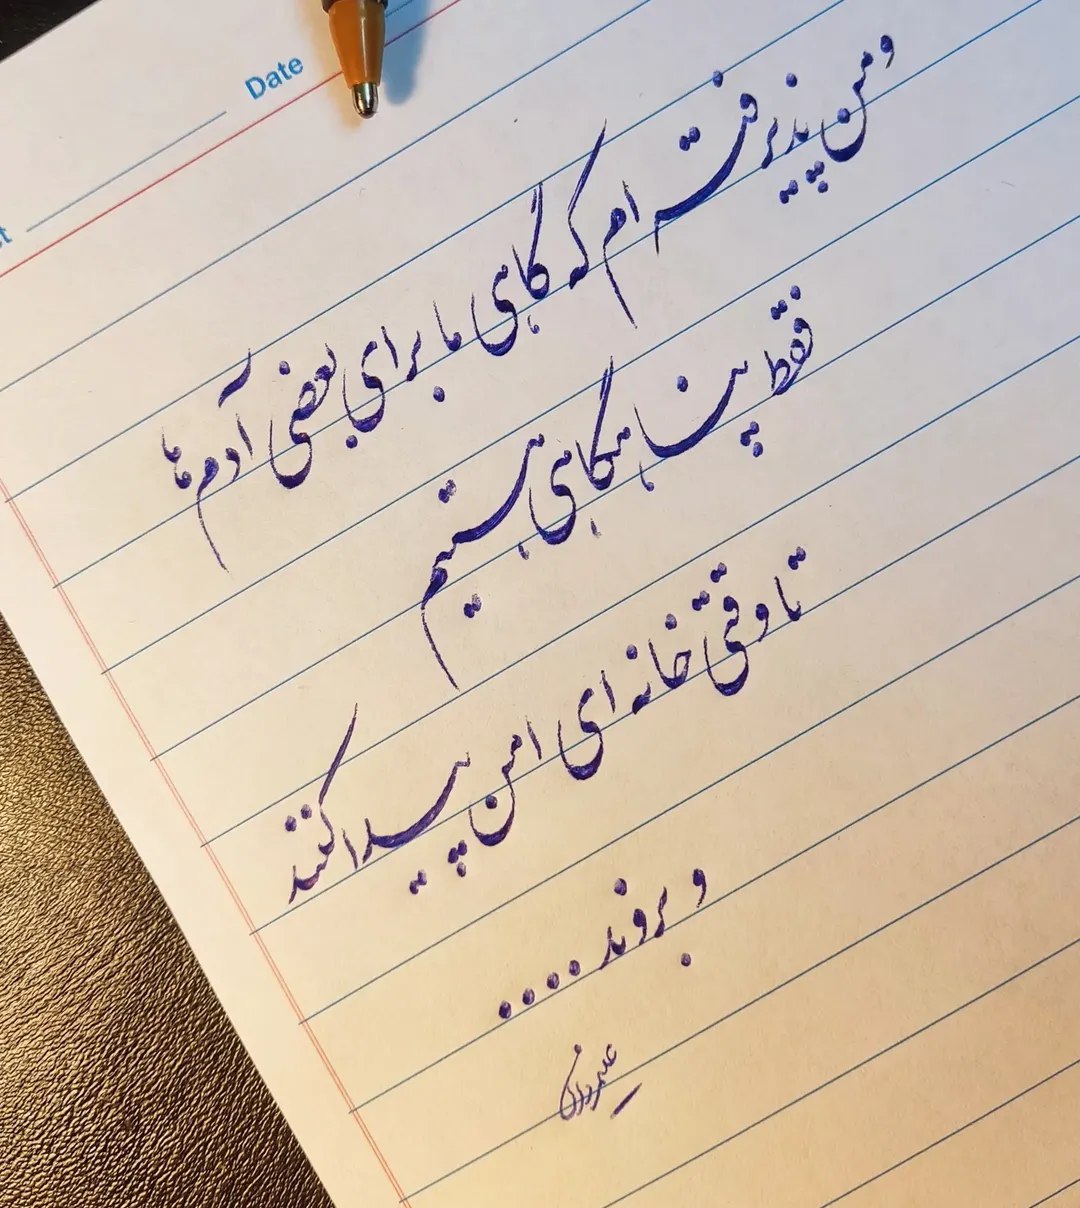 Date
و من پذیرفته ام که گاهی ما برای بعضی آدم ها
فقط پناهگاهی هستیم
تا وقتی خانه ای امن پیدا کنند
و بروند ....